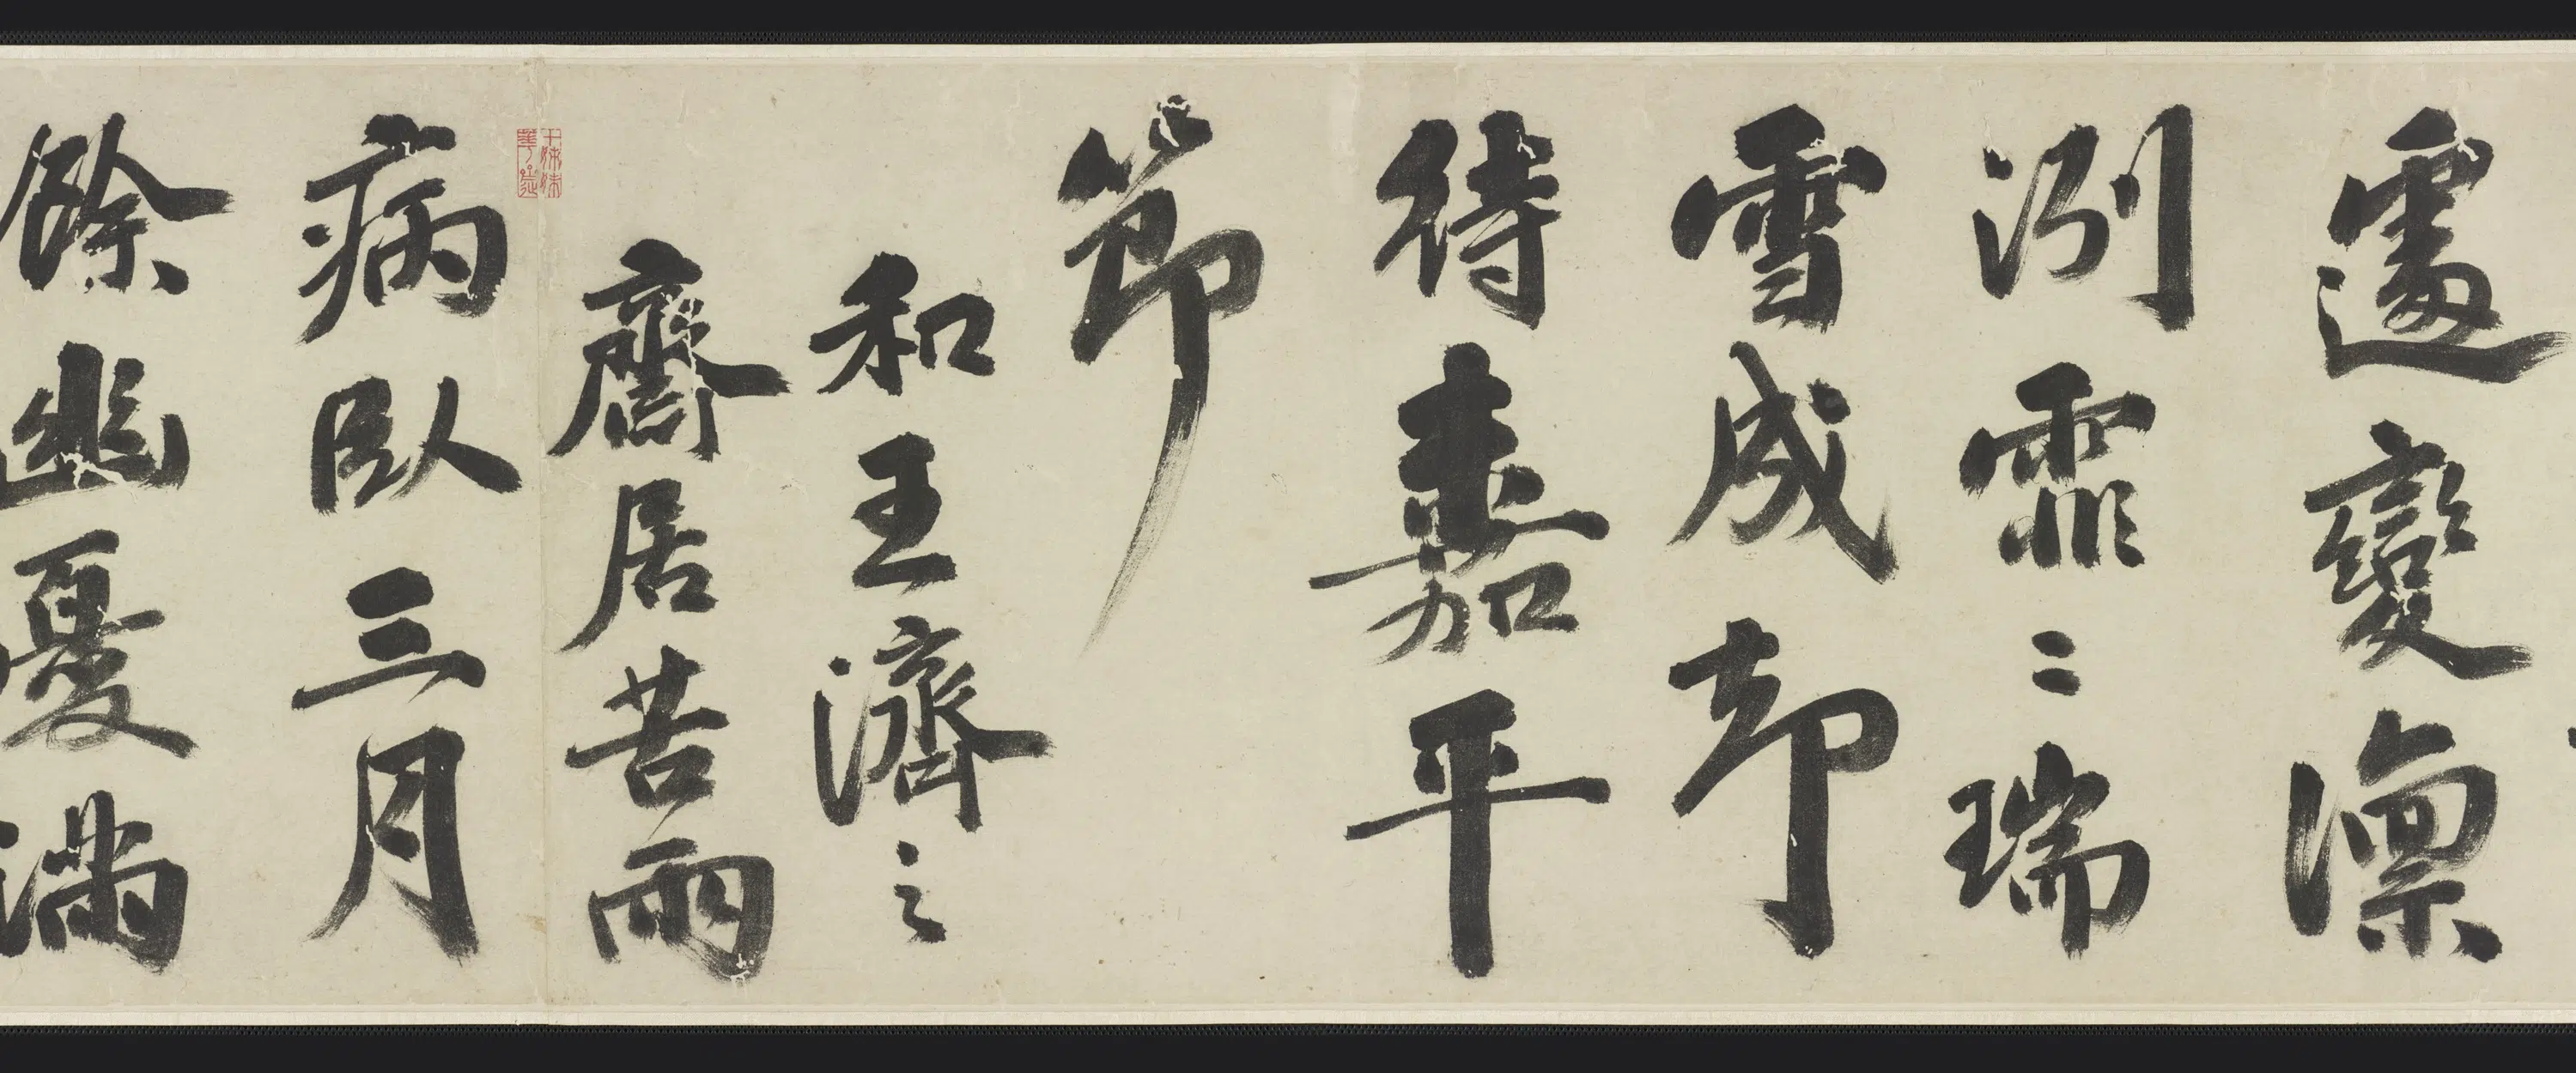 遽變凛
冽霏〻瑞
雪成却
待嘉平
節
和王濟之
齋居苦雨
病臥三月
餘幽憂滿